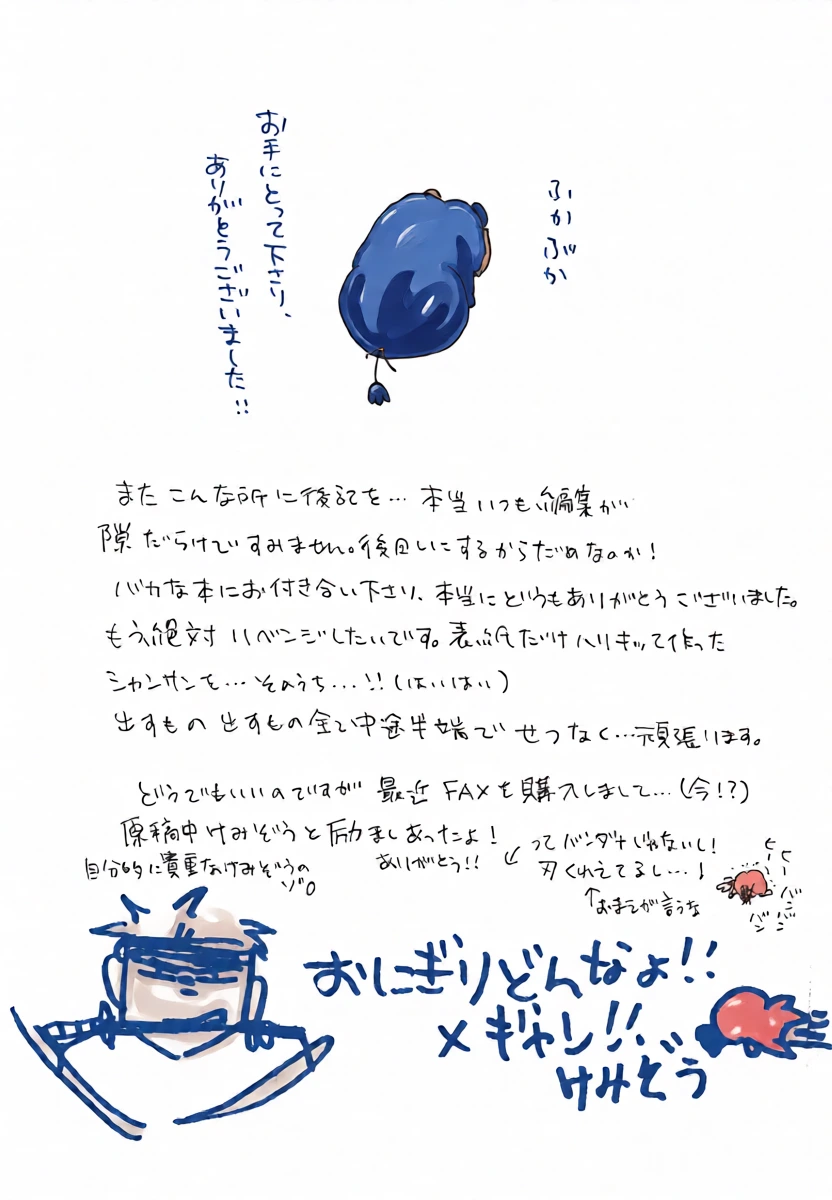 ふかぶか
お手にとって下さり、
ありがとうございました!!
また こんな所に後記を… 本当いつも編集が
隙だらけですみません。後回しにするからだめなのか!
バカな本にお付き合い下さり、本当にどうもありがとうございました。
もう絶対リベンジしたいです。表紙だけハリキって作った
シャンサンを…そのうち…!!(はいはい)
出すもの出すもの全て中途半端でせつなく…頑張ります。
どうでもいいのですが 最近 FAXを購入しまして…(今!?)
原稿中けみぞうと励ましあったよ!
ありがとう!!
自分的に貴重なけみぞうの
ゾロ
↙ ってバンダナじゃないし!
刃くわえてるし…!
↑おまえが言うな
ヒー ヒー
バン バン バン
おにぎりどんなよ!!
×ギャン!!
けみぞう